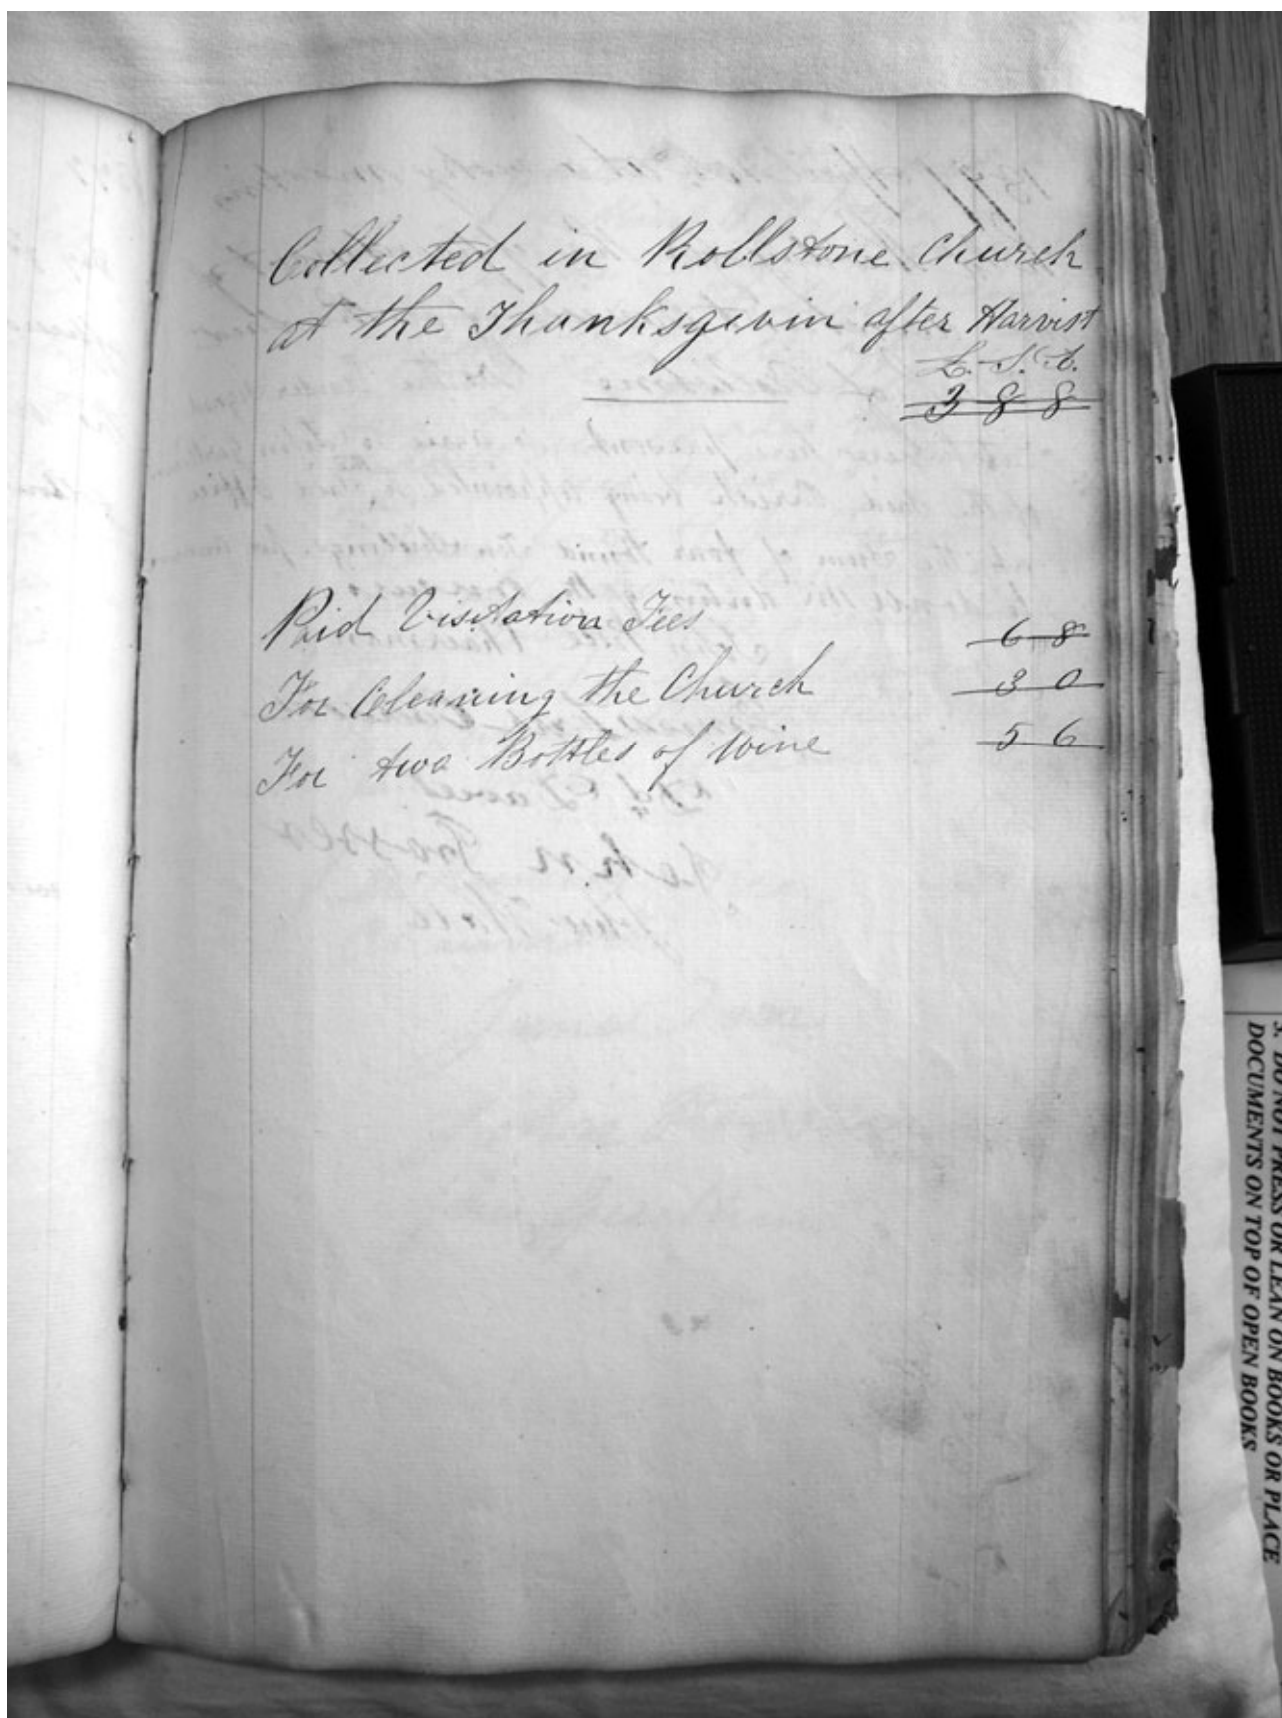 Collected in Rollstone Church
at the Thanksgevin after Harvist
£. S. d.
3 8 8
Paid Visitation Fees 6 8
For Cleaning the Church 3 0
For two Bottles of Wine 5 6
3. DO NOT PRESS OR LEAN ON BOOKS OR PLACE
DOCUMENTS ON TOP OF OPEN BOOKS